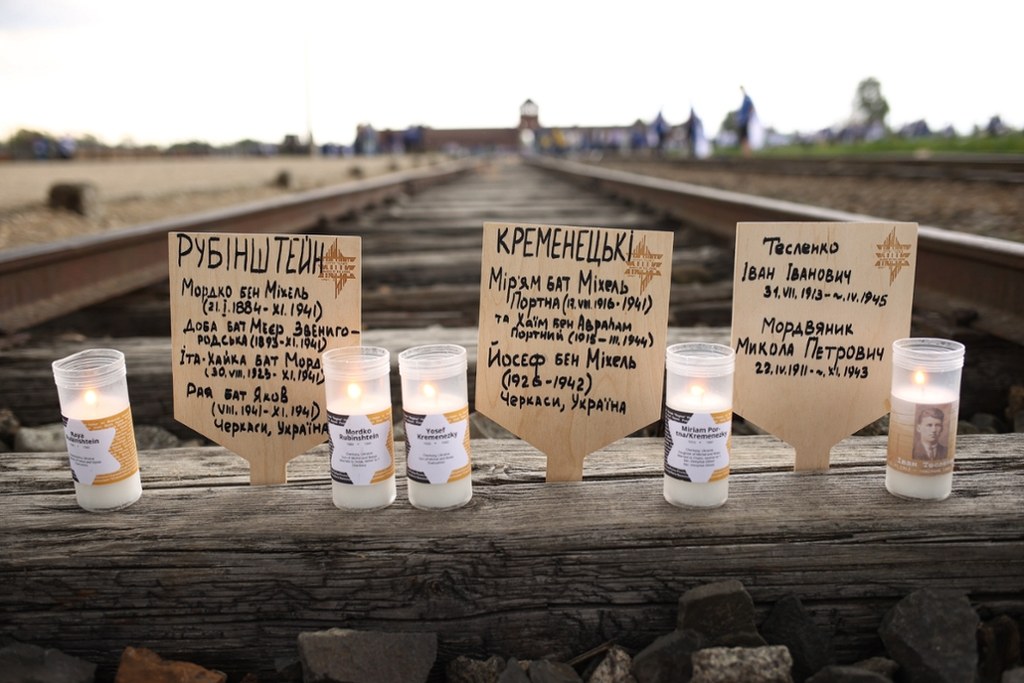 РУБІНШТЕЙН
Мордко бен Міхель
(21.I.1884 - XI.1941)
Доба бат Меєр Звениго-
родська (1893-XI.1941)
Іта-Хайка бат Морд
(30.VIII.1923 - XI.1941)
Рая бат Яков
(VIII.1941 - XI.1941)
Черкаси, Україна
КРЕМЕНЕЦЬКІ
Мір'ям бат Міхель
Портна (17.VII.1916-1941)
та Хаїм бен Авраham
Портний (1915 - III.1944)
Йосеф бен Міхель
(1926-1942)
Черкаси, Україна
Тесленко
Іван Іванович
31.VII.1913 - ~.IV.1945
Мордвяник
Микола Петрович
29.IV.1911 - ~.XI.1943
Raya
Rubinshtein
Mordko
Rubinshtein
Yosef
Kremenezky
Miriam Por-
tna/Kremenezky